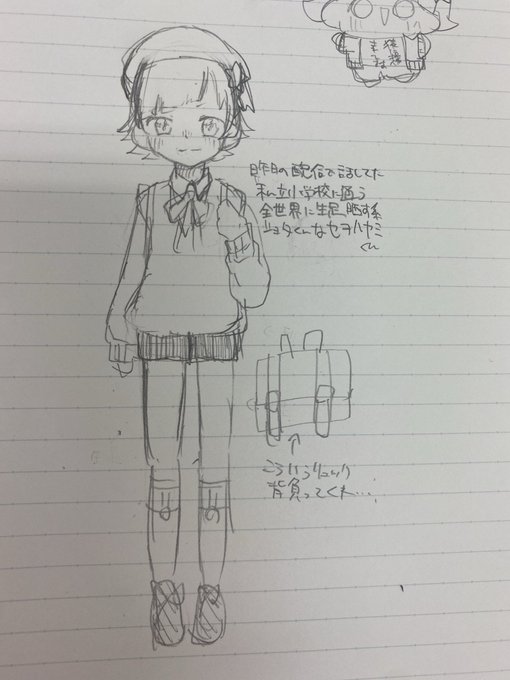 昨日の配信で話してた
私立小学校に通う
全世界に生足晒す系
ショタくんなセヲハヤミ
くん
こういうリュック
背負ってくれ…